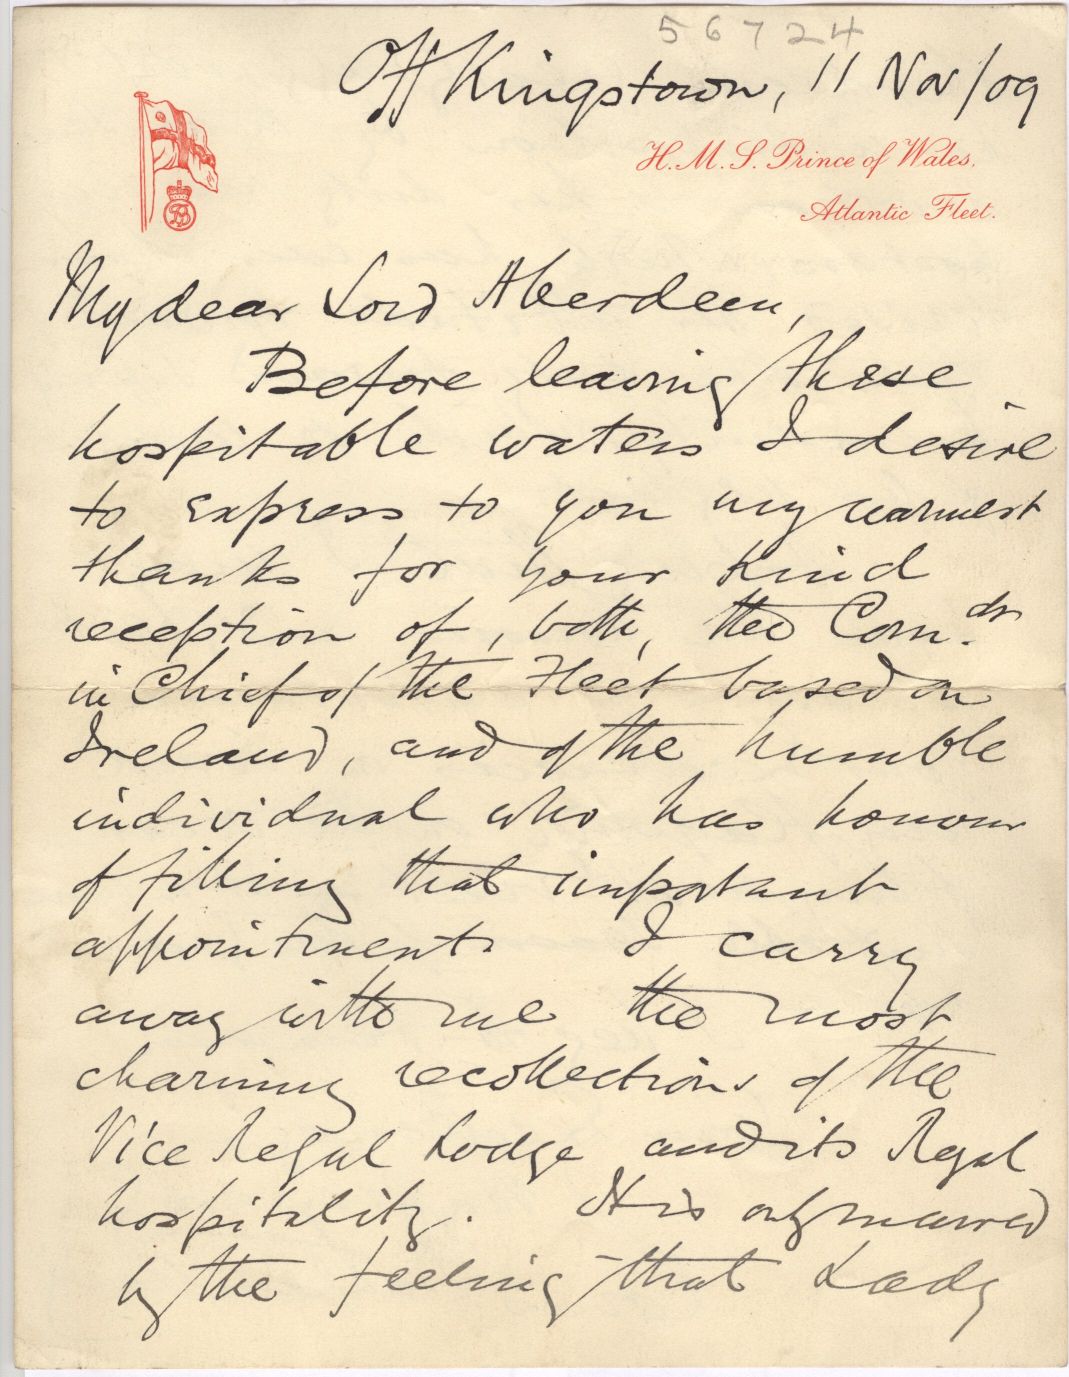 56724
Off Kingstown, 11 Nov/09
H.M.S. Prince of Wales,
Atlantic Fleet.
My dear Lord Aberdeen,
Before leaving these
hospitable waters I desire
to express to you my warmest
thanks for your kind
reception of, both, the Com.dr
in Chief of the Fleet based on
Ireland, and of the humble
individual who has honour
of filling that important
appointment. I carry
away with me the most
charming recollections of the
Vice Regal Lodge and its Regal
hospitality. It is only marred
by the feeling that Lady